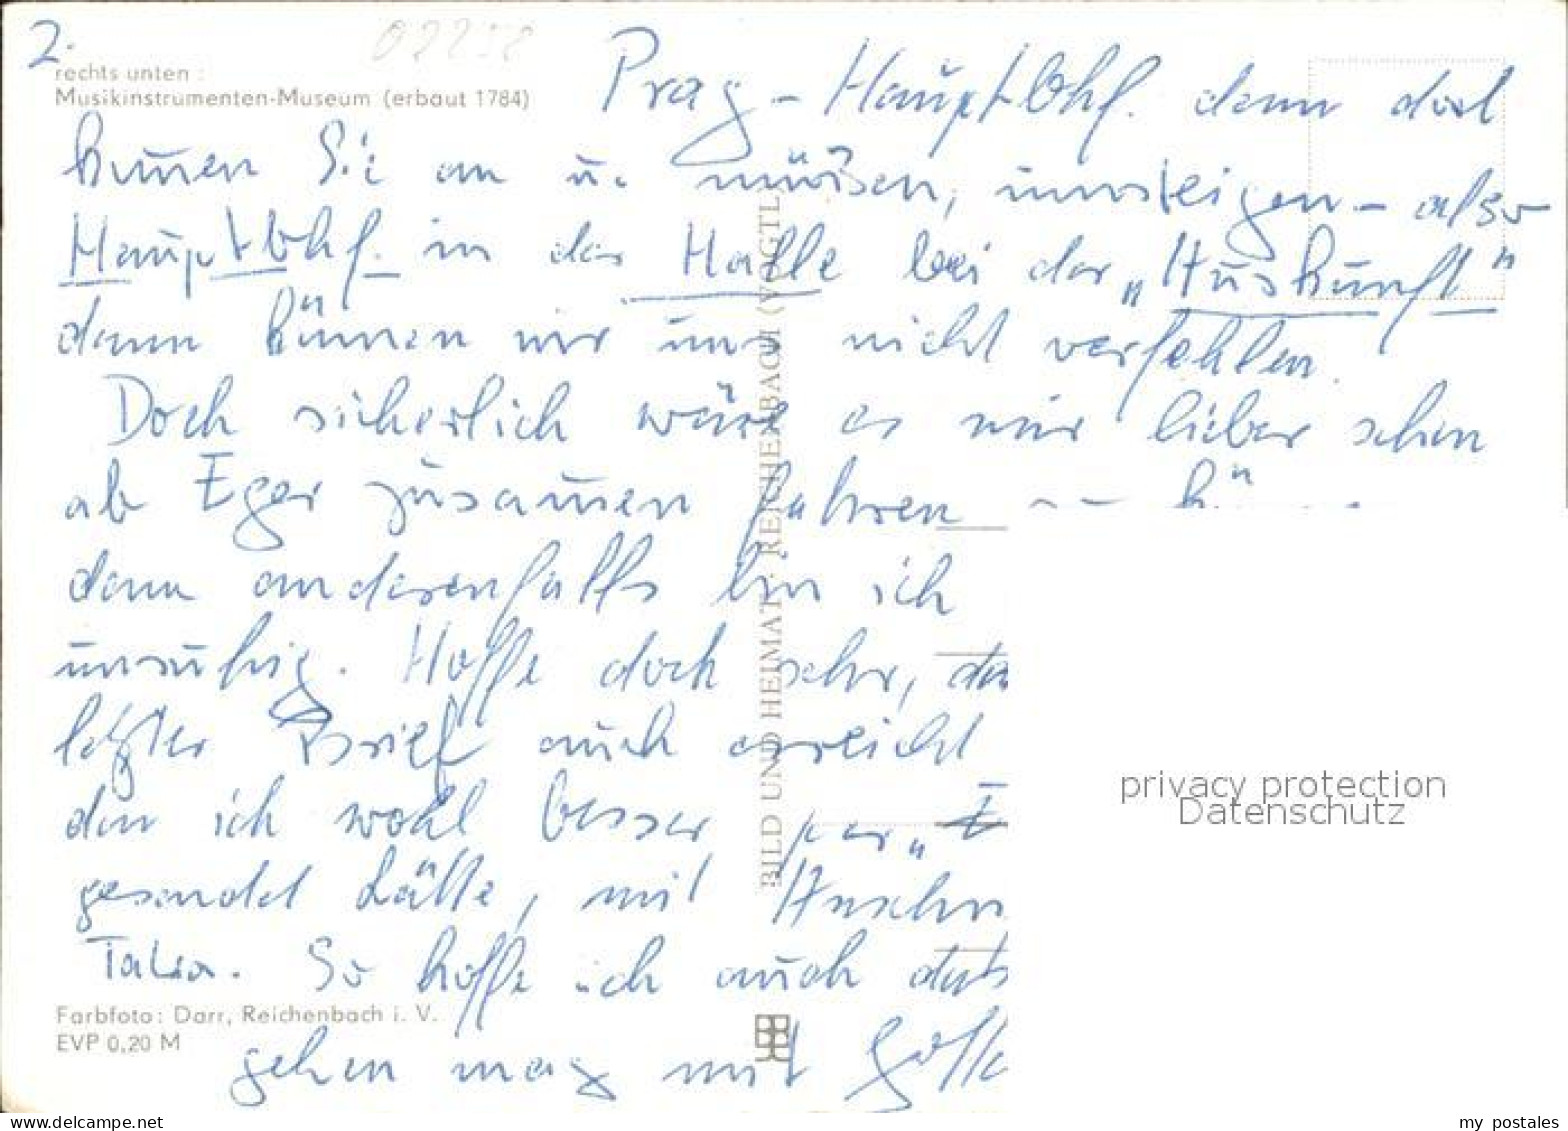 2.
rechts unten :
Musikinstrumenten-Museum (erbaut 1784)
Prag - Hauptbhf. denn dort
kom̄en Sie an u. müssen, umsteigen - also
Hauptbhf. in der Halle bei der "Auskunft"
dann kön̄en wir uns nicht verfehlen.
Doch sicherlich wäre es mir lieber schon
ab Eger zusam̄en fahren
denn anderenfalls bin ich
unruhig. Hoffe doch sehr, da
letzter Brief auch erreicht
den ich wohl besser per "E
gesandt hätte, mit Anschr
Tabea. So hoffe ich auch daß
gehen mag mit Gotte
BILD UND HEIMAT · REICHENBACH (VOGTL)
Farbfoto: Darr, Reichenbach i. V.
EVP 0,20 M
privacy protection
Datenschutz
www.delcampe.net
my_postales